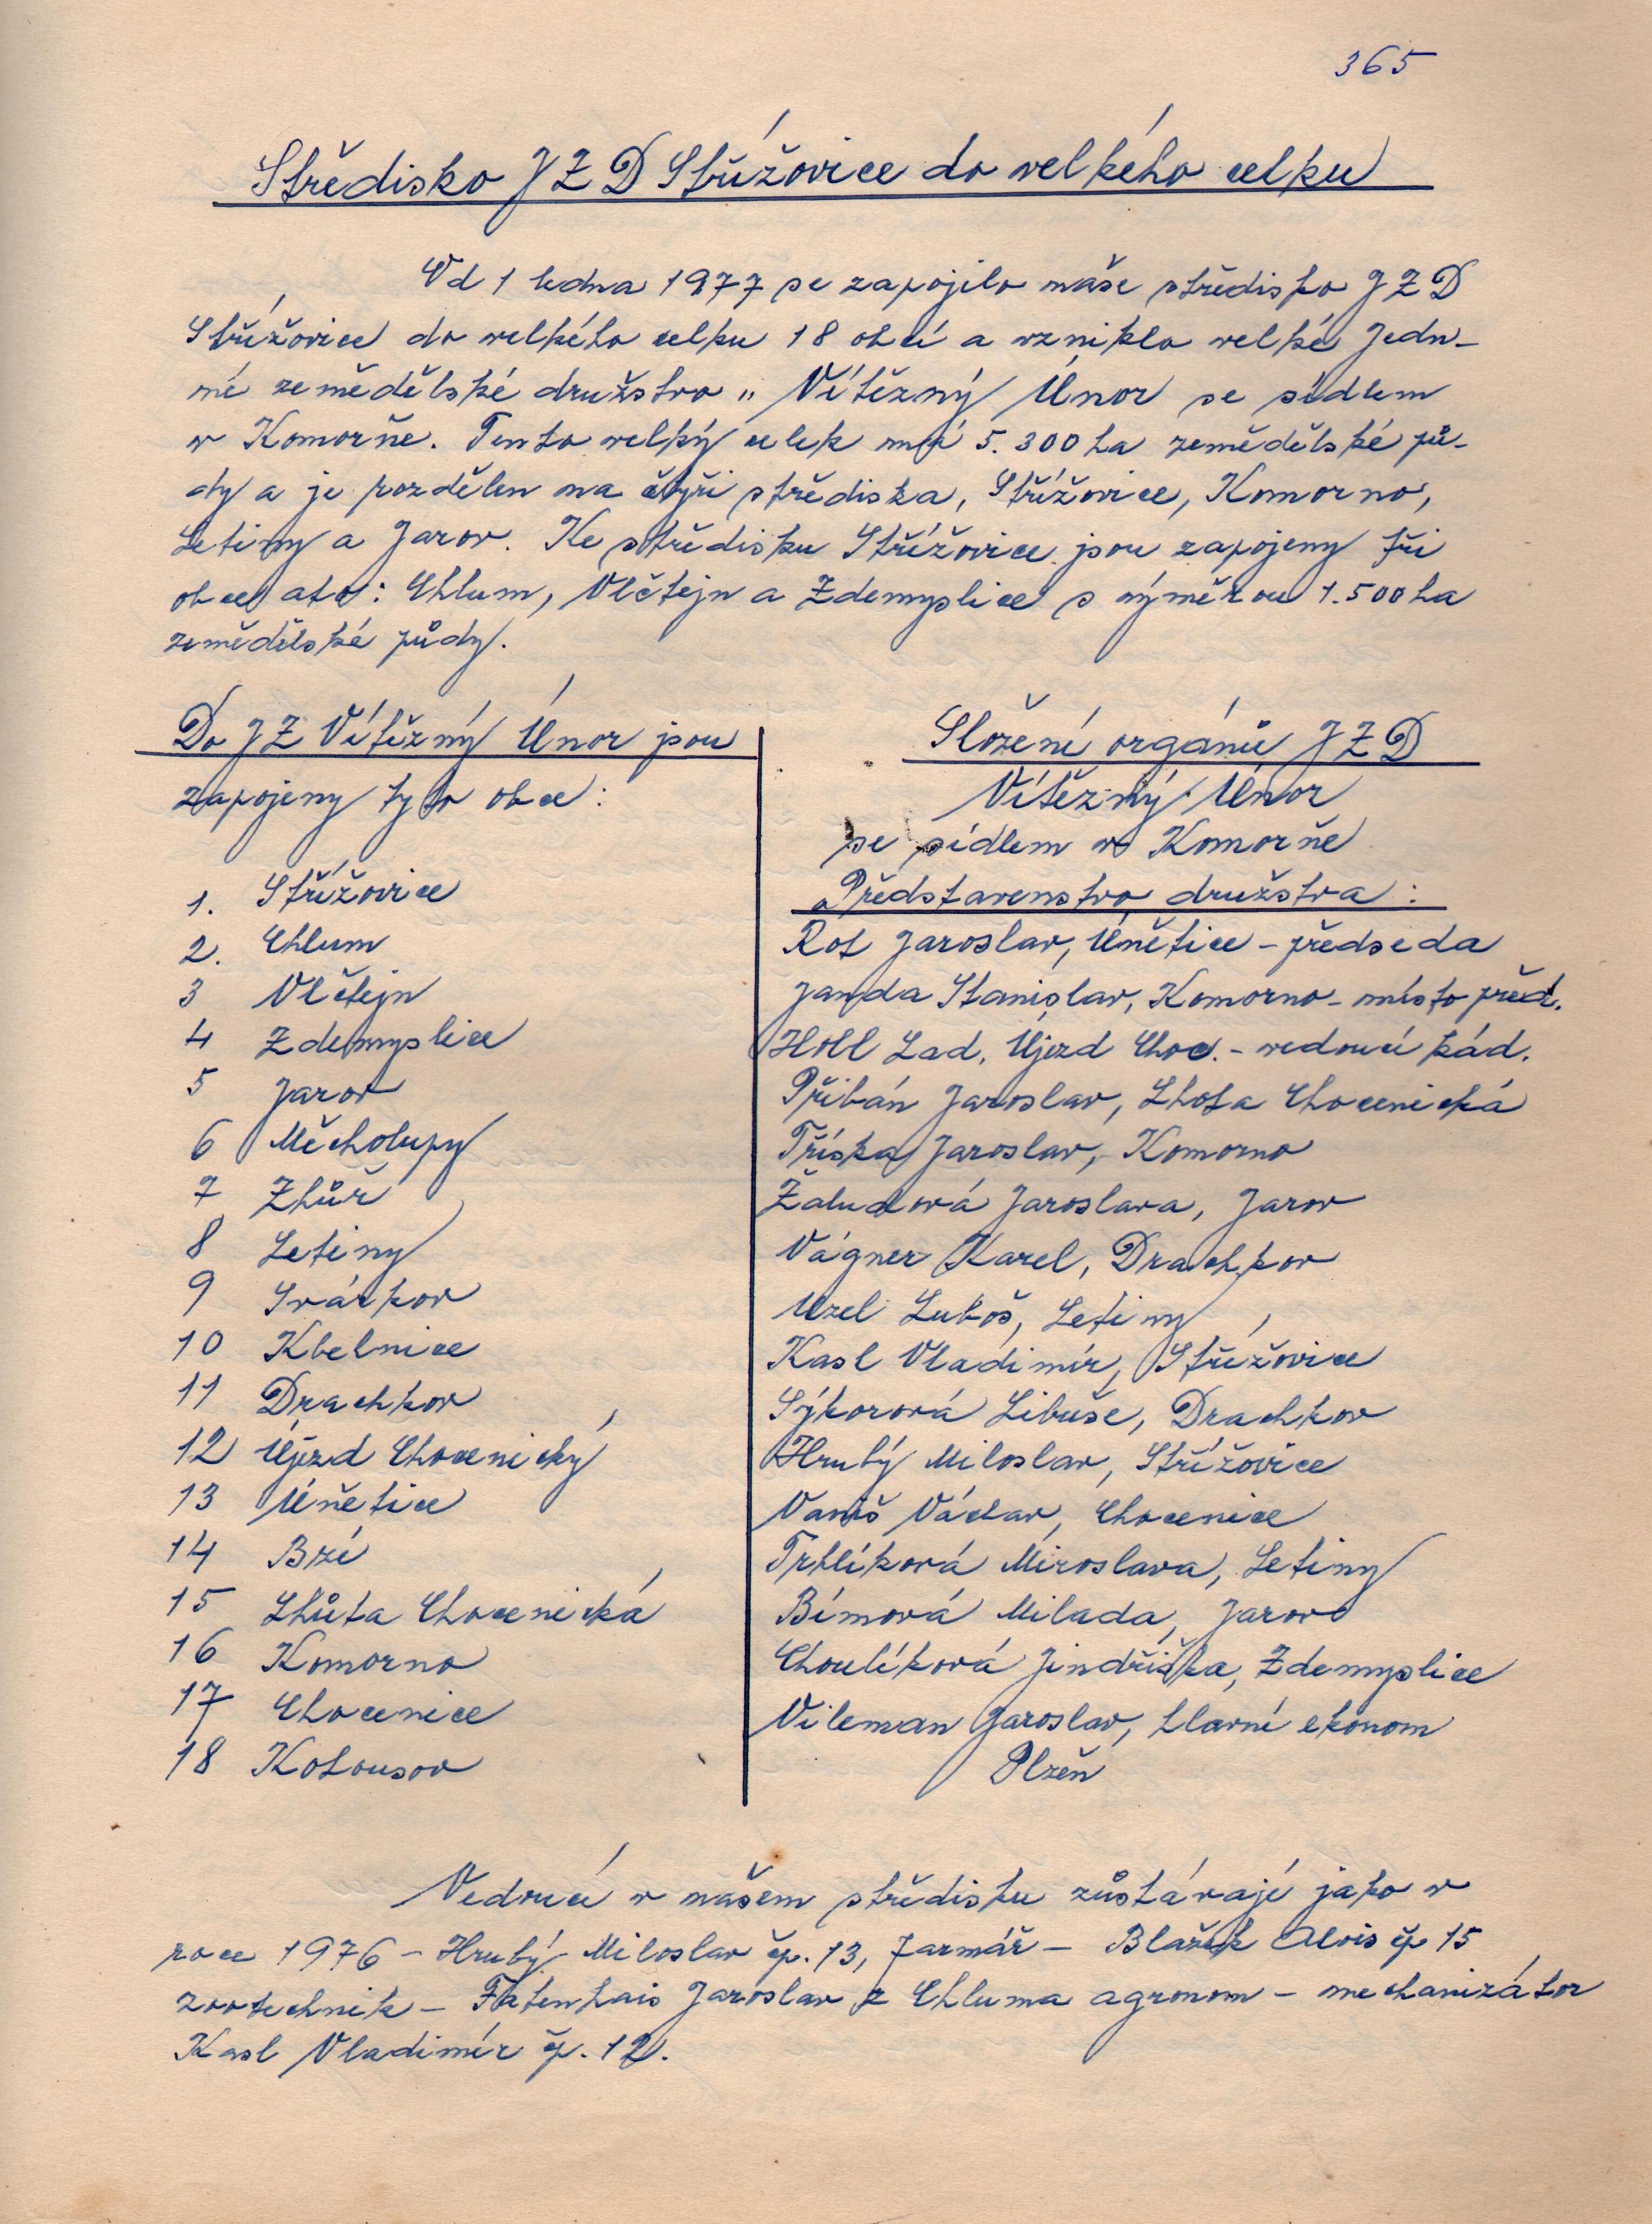 365
Středisko JZD Střížovice do velkého celku
Od 1 ledna 1977 se zapojilo naše středisko JZD
Střížovice do velkého celku 18 obcí a vzniklo velké Jedn-
né zemědělské družstvo „ Vítězný Únor se sídlem
v Komorňe. Tento velký celek má 5.300 ha zemědělské pů-
dy a je rozdělen na čtyři střediska, Střížovice, Komorno,
Letiny a Jarov. Ke středisku Střížovice jsou zapojeny tři
obce ato: Chlum, Vlčtejn a Zdemyslice s výměrou 1.500 ha
zemědělské půdy.
Do JZ Vítězný Únor jsou
zapojeny tyto obce:
1. Střížovice
2. Chlum
3 Vlčtejn
4 Zdemyslice
5 Jarov
6 Měcholupy
7 Zhůř
8 Letiny
9 Svárkov
10 Kbelnice
11 Drachkov
12 Újezd Chocenický
13 Úňetice
14 Bzí
15 Lhůta Chocenická
16 Komorno
17 Chocenice
18 Kotousov
Složení orgánů JZD
Vítězný Únor
se sídlem v Komorňe
Představenstvo družstva:
Rot Jaroslav, Úňetice - předseda
Janda Stanislav, Komorno - místo před.
Holl Lad. Újezd Choc. - vedoucí kád.
Přibáň Jaroslav, Lhota Chocenická
Tříska Jaroslav, Komorno
Žaludová Jaroslava, Jarov
Vágner Karel, Drachkov
Uzel Luboš, Letiny
Kasl Vladimír, Střížovice
Sýkorová Libuše, Drachkov
Hrubý Miloslav, Střížovice
Vaniš Václav, Chocenice
Trhlíková Miroslava, Letiny
Bímová Milada, Jarov
Choulíková Jindřiška, Zdemyslice
Vileman Jaroslav, hlavní ekonom
Plzeň
Vedoucí v našem středisku zůstávají jako v
roce 1976 - Hrubý Miloslav čp. 13, farmář - Blažek Alois čp 15
zootechnik - Jaroslav z Chluma agronom - mechanizátor
Kasl Vladimír čp. 12.